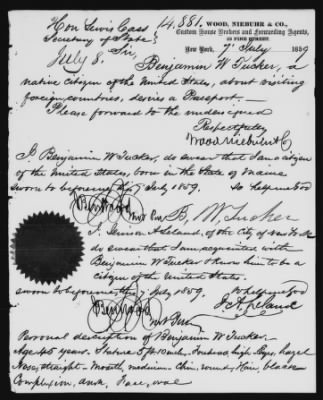 Hon Lewis Cass
14,881.
WOOD, NIEBUHR & CO.,
Secretary of State
Custom House Brokers and Forwarding Agents,
July 8.
Sir,
New York, 7 July 1859
Benjamin W Tucker, a
native citizen of the United States, about visiting
foreign countries, desires a Passport.—
Please forward to the undersigned
Respectfully
Wood Niebuhr & Co
I, Benjamin W Tucker, do swear that I am a citizen
of the United States, born in the State of Maine
sworn to before me this 7 July 1859. So help me God
B. W. Tucker
I, of the City of New York
do swear that I am acquainted with
Benjamin W Tucker & know him to be a
citizen of the United States.
sworn to before me this 7 July 1859. So help me God
Personal description of Benjamin W Tucker.
Age 45 years. Stature 5 ft 10 inches, Forehead high, Eyes, hazel
Nose, straight — Mouth, medium — Chin, round, Hair, black
Complexion, dark, Face, oval